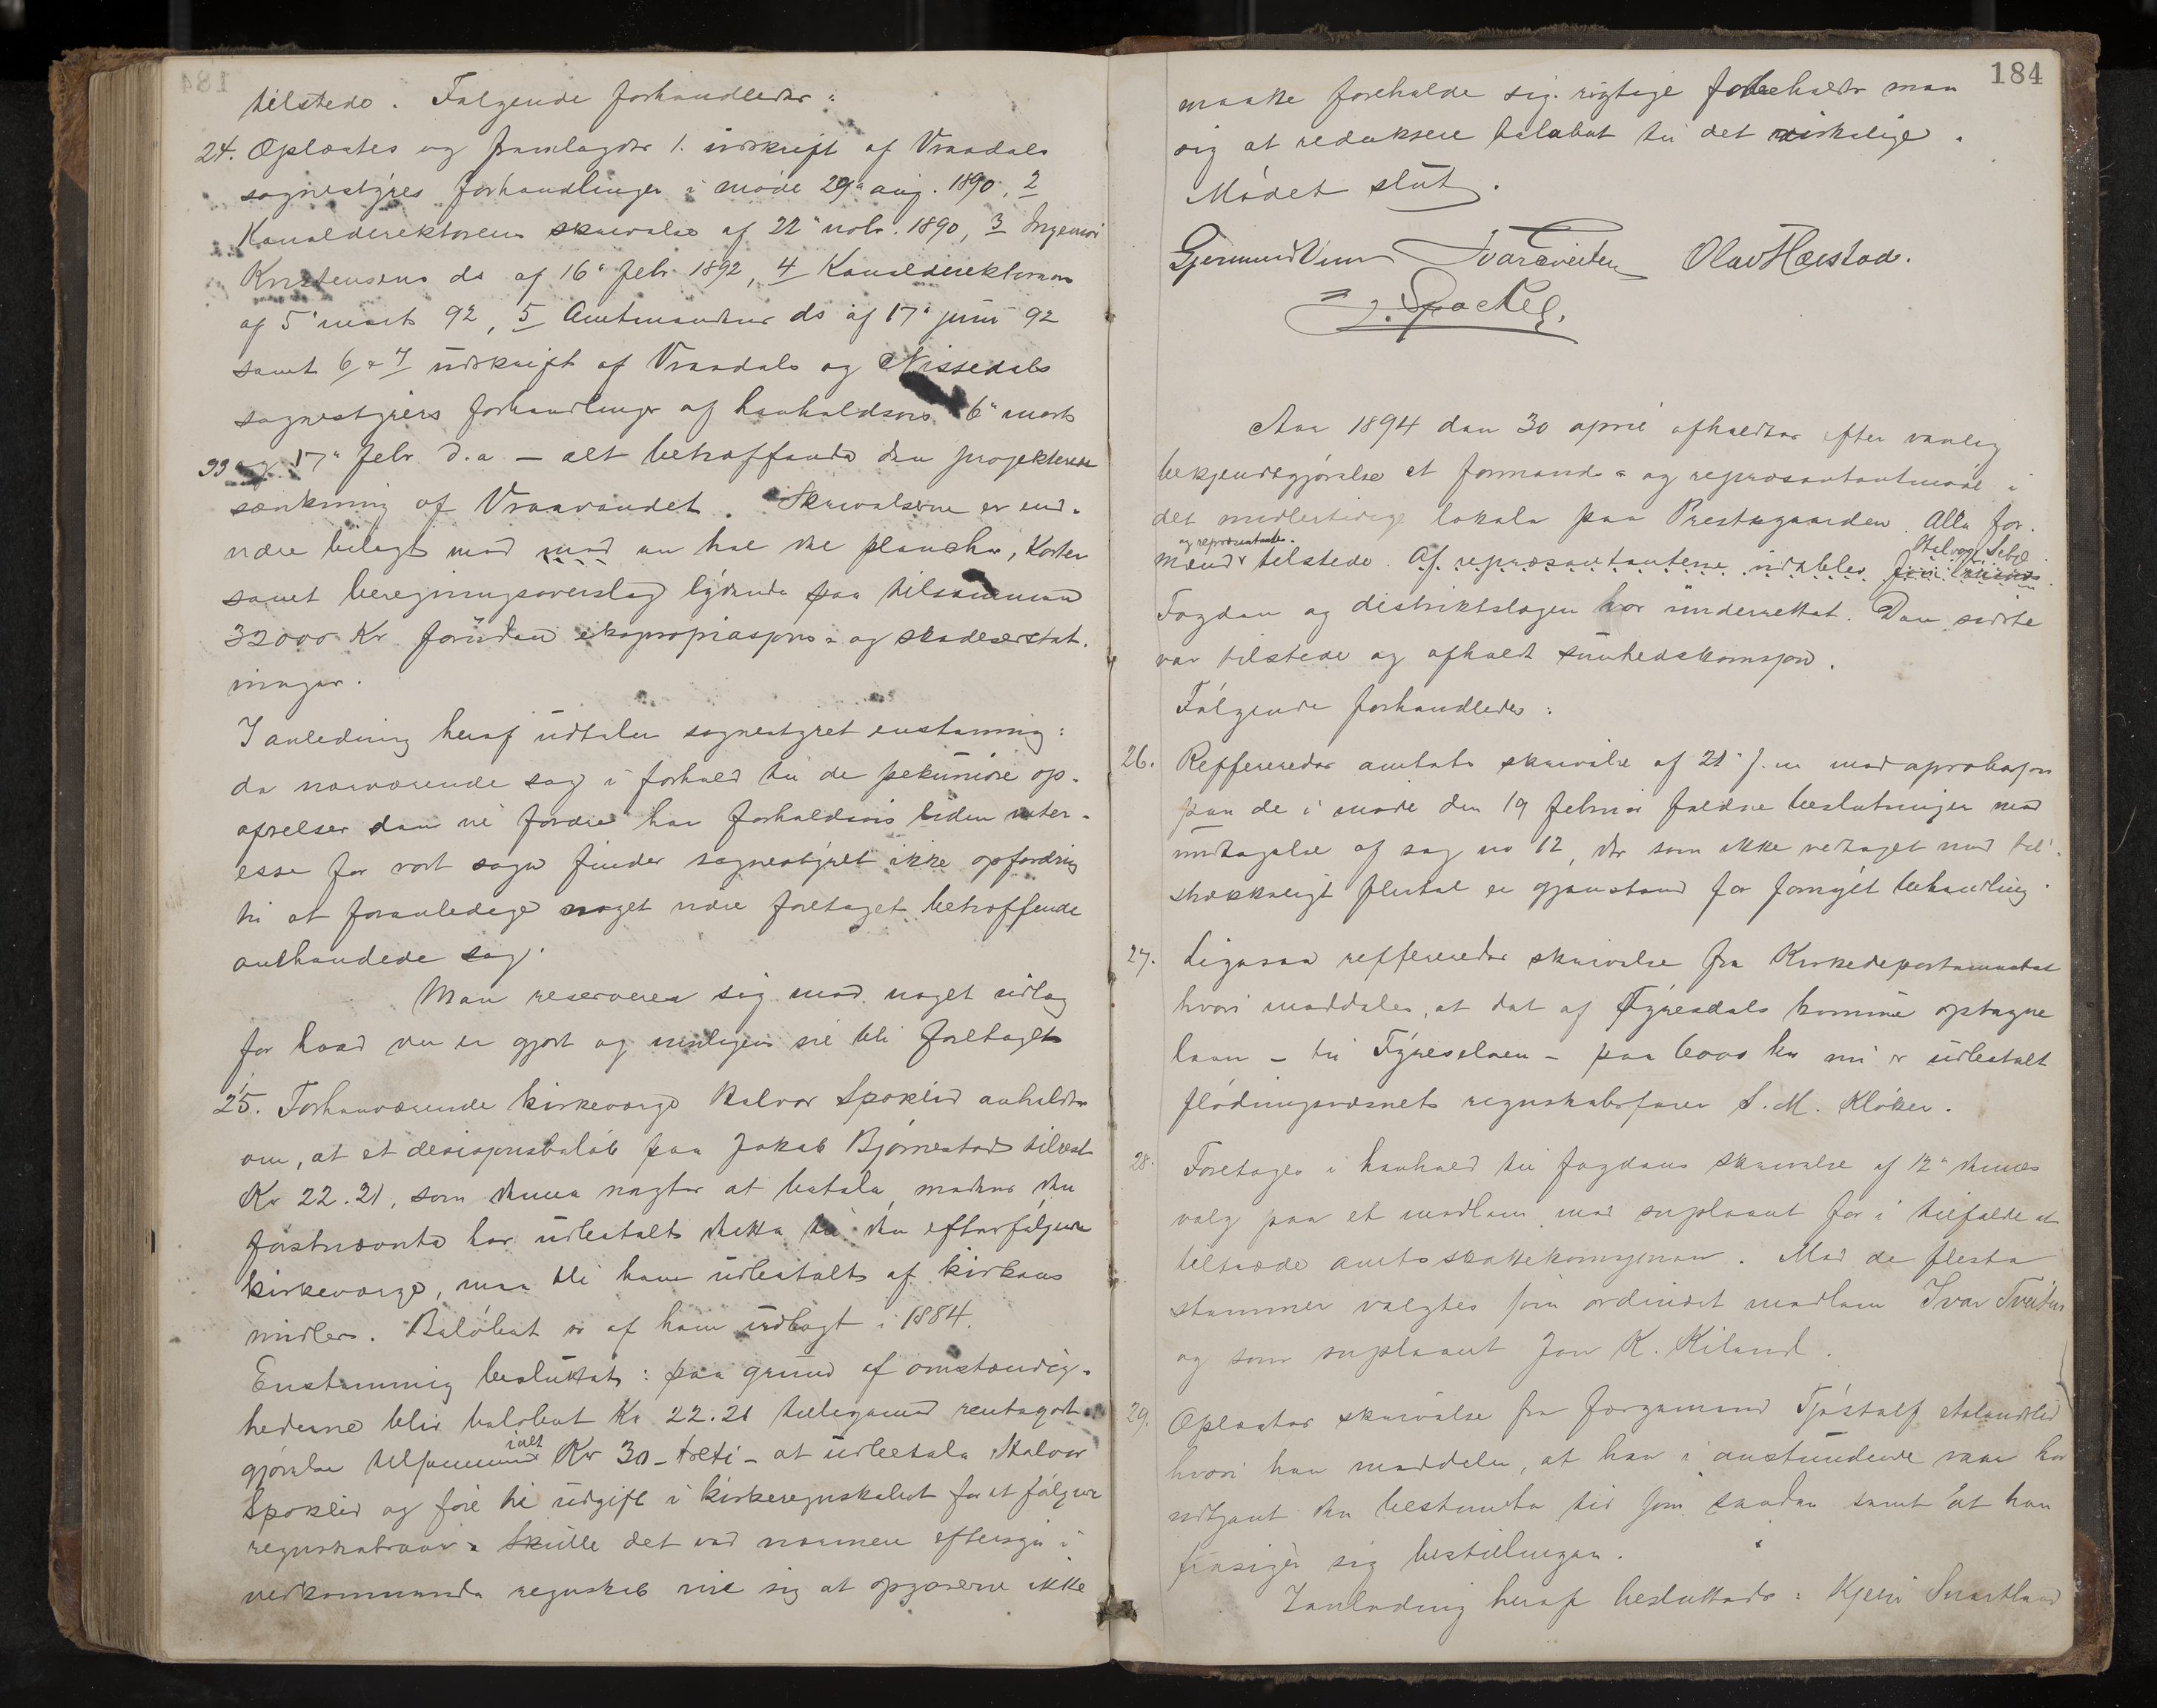 tilstede. Følgende forhandledes:
24. Oplæstes og framlagdes 1. utskrift af Vraadals
sognestyres forhandlinger i møde 29de aug. 1890, 2
Kanaldirektørens skrivelse af 22 novbr. 1890, 3 Ingeniør
Kristensens ds af 16 febr. 1892, 4 Kanaldirektørens
af 5 marts 92, 5 Amtmandens ds af 17 juni 92
samt 6 & 7 udskrift af Vraadals og Nissedals
sognestyrers forhandlinger af henholdsvis 6 marts
93 og 17 febr d.a – alt betræffende den projekterede
sænkning af Vraavandet. Skrivelserne er end-
videre bilagt med med en hel del plancher, Karter
samt beregningsoverslag lydende paa tilsammen
32000 Kr foruden ekspropriasjons- og skadeserstat-
ninger.
I anledning heraf udtaler sognestyret enstemmig:
da nærværende sag i forhold til de pekuniære op-
ofrelser den vil fordre har forholdsvis liden inter-
esse for vort sogn finder sognestyret ikke opfordring
til at foranledige noget videre foretaget betræffende
omhandlede sag.
Man reserverer sig mod noget udlæg
for hvad der er gjort og muligens vil bli foretaget
25. Forhenværende kirkeværge Halvor Spoklid anholdte
om, at et desisjonsbeløb paa Jakob Bjørnestad tilrest
Kr 22.21, som denne nægter at betale medens den
førstnævnte har udbetalt dette til den efterfølgende
kirkeværge, maa bli ham udbetalt af kirkens
midler. Beløbet er af ham udlagt i 1884.
Enstemmig besluttet: paa grund af omstændig-
hederne blir beløbet Kr 22.21 tilligemed rentegodt-
gjørelse tilsammen ialt Kr 30 – treti – at udbetale Halvor
Spoklid og føre til udgift i kirkeregnskabet for et følgende
regnskabsaar. Skulle det ved nærmere eftersyn i
vedkommende regnskab vise sig at opgaverne ikke
184
maatte foreholde sig rigtige forbeholdes man
sig at reduksere beløbet til det virkelige.
Mødet slut.
Gjermund Ivar Tveiten Olav Hæstad.
Spoklid
Aar 1894 den 30 april afholdtes efter vanlig
bekjendtgjørelse et formands- og repræsentantmøde i
det midlertidige lokale paa Prestegaarden. Alle for-
og repræsentanter
mænd tilstede. Af repræsentanterne udeblev
Fogden og distriktslægen var underrettet. Den sidste
var tilstede og afholdt sunhedskomisjon.
Følgende forhandledes:
26. Reffereredes amtets skrivelse af 21 f.m med aprobasjon
paa de i møde den 19 februar fældne beslutninger med
undtagelse af sag no 12, der som ikke vedtaget med til-
strækkeligt flertal er gjenstand for fornyet behandling.
27. Ligesaa reffereredes skrivelse fra Kirkedepartementet
hvori meddeles, at det af Fyresdals komune optagne
laan – til Fyreselven – paa 6000 kr nu er udbetalt
flødningsvæsnets regnskabsfører S. M. Kløker.
28. Foretages i henhold til fogdens skrivelse af 12 dennes
valg paa et medlem med supleant for i tilfælde at
tiltræde amtsskattekomisjonen. Med de fleste
stemmer valgtes som ordinært medlem Ivar Tveiten
og som supleant Jon K. Kiland.
29. Oplæstes skrivelse fra færgemand Tjøstolf
hvori han meddeler, at han i anstundende vaar har
udtjent den bestemte tid som saadan samt at han
frasiger sig bestillingen.
I anledning heraf besluttedes: Kjetil Snartland